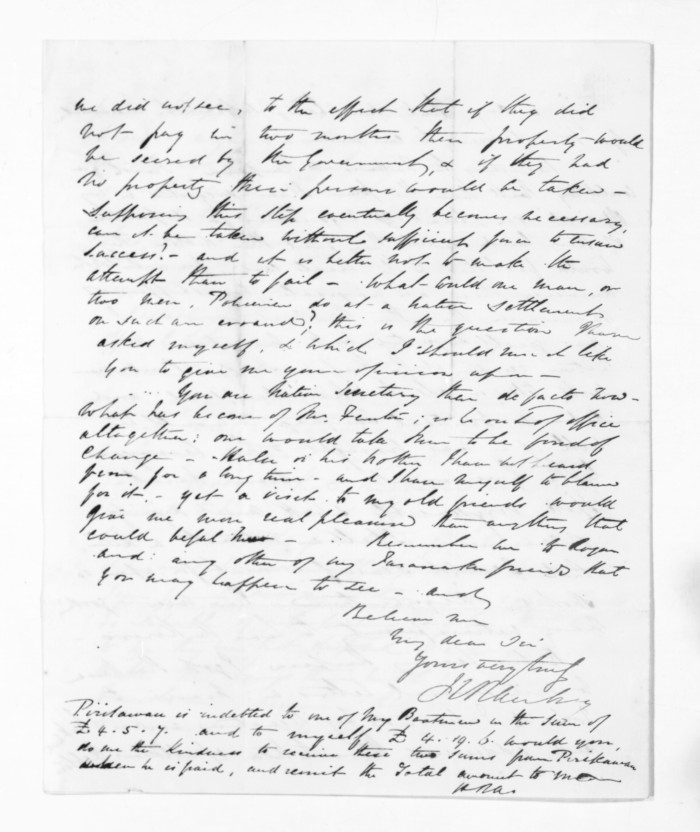 we did not see, to the effect that if they did
not pay in two months their property would
be seized by the Government, & if they had
no property their persons would be taken -
Supposing this step eventually becomes necessary,
can it be taken without sufficient force to ensure
success? - and it is better not to make the
attempt than to fail - what would one man, or
two men, Policemen do at a native settlement
on such an errand? this is the question I have
asked myself, & which I should much like
you to give me your opinion upon -
You are Native Secretary then de facto now -
What has become of Mr. Fenton; is he out of office
altogether; one would take him to be fond of
Change - Halse or his brother I have not heard
from for a long time - and I have myself to blame
for it. - yet a visit to my old friends would
give me more real pleasure than anything that
could befal me - Remember me to Rogan
and any other of my Taranaki friends that
you may happen to see - and
Believe me
My dear Sir
Yours very truly
Pirikawau is indebted to one of my Boatmen in the Sum of
£4.5.7. and to myself £4.19.6. would you,
do me the kindness to receive these two Sums from Pirikawau
when he is paid, and remit the Total amount to me